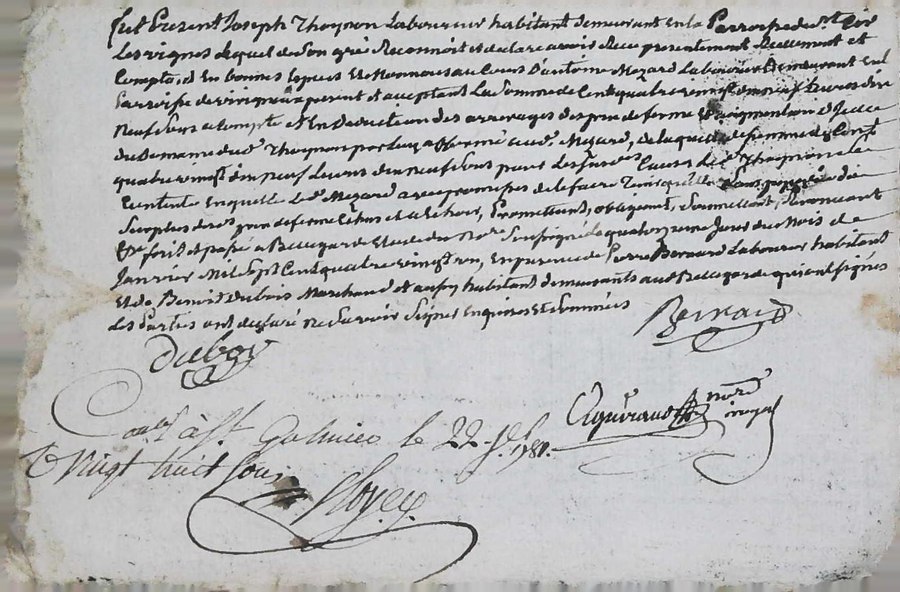 fut Present Joseph Thoynon Laboureur habitant demeurant en la Parroisse de st Cir
Les vignes Lequel de son gré Reconnoit et declare avoir Receu presentement Reellement et
Compté, et En bonnes Especes Et Monnoyes au Cours D'antoine Mozard Laboureur Demeurant En la
Parroisse de present et acceptant La Somme de Cent quatre vingt dix neuf Livres dix
Neuf sols a Compte et En Deduction des arrerages des prix de ferme Et augmentation d'Icelle
du Domaine dud. Thoynon par Luy affermé aud. Mozard, de laquelle ditte somme de Cent
quatre vingt dix neuf Livres dix neuf sols pour Les susd. Causes Led. Thoynon s'en
Contente En quitte Led. Mozard avec promesse de le faire Tenir quitte, Sans prejudice du
Surplus desd. prix de ferme Echus et a Echoir, Promettant, obligeant, Soumettant, Renonceant
fait et passé a Bellegarde Etude du No.re Soussigné Le quatorzieme Jour du Mois de
Janvier Mil Sept Cent quatre vingt un, En presence de Pierre Bernard Laboureur habitant
Et de Benoit Dubois Marchand Et aussy habitant demeurants aud. Bellegarde qui ont signés
Les Parties ont declaré Ne Savoir Signer Enquises Et Sommées
Bernard
Duboy
nore
royal
à St Galmier le 22 1781.
vingt huit sous